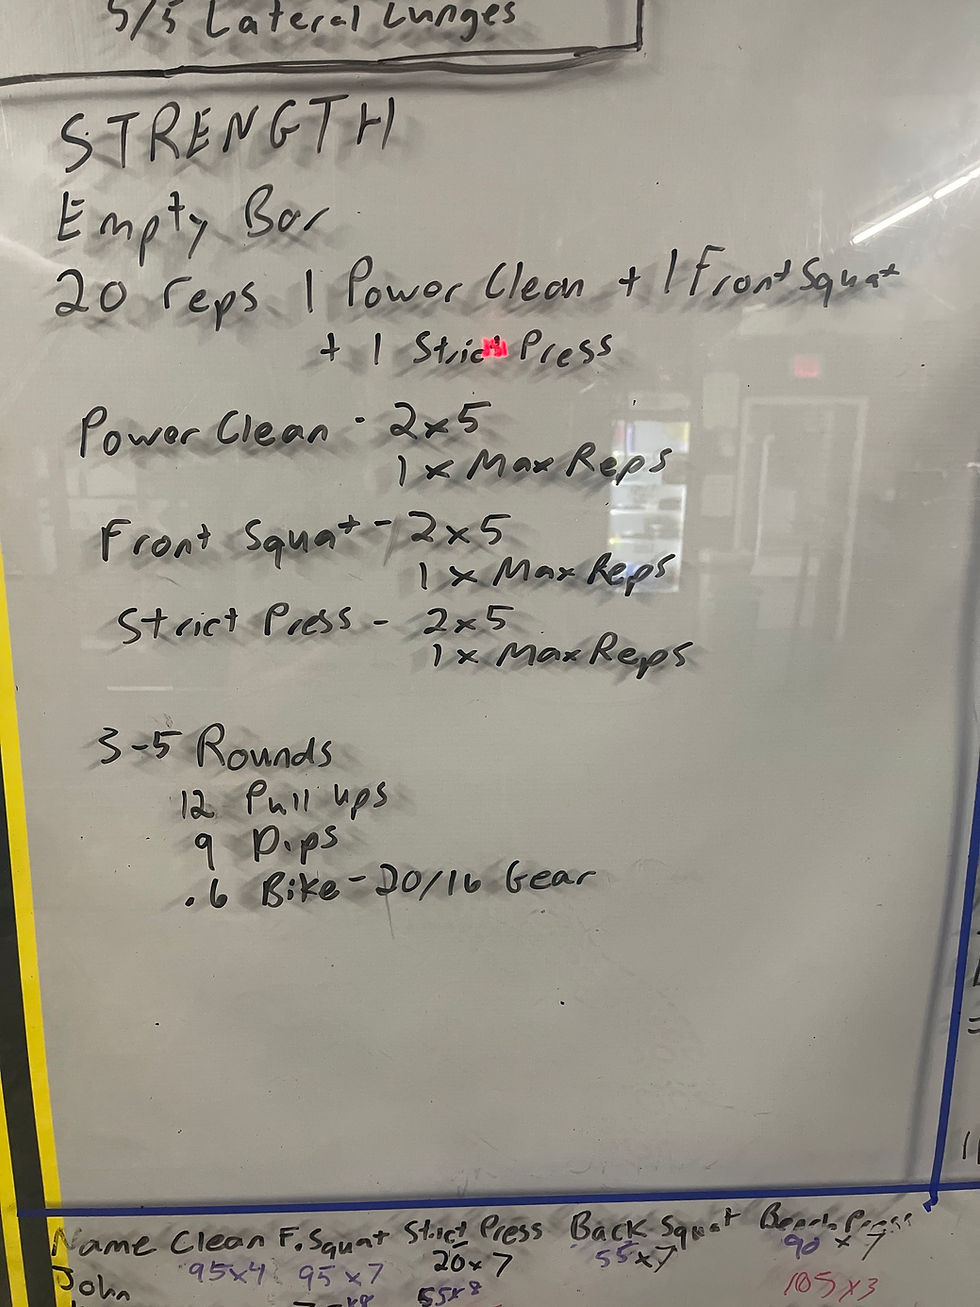 5/5 Lateral Lunges
STRENGTH
Empty Bar
20 reps 1 Power Clean + 1 Front Squat
+ 1 Strict Press
Power Clean - 2x5
1 x Max Reps
Front Squat - 2x5
1 x Max Reps
Strict Press - 2x5
1 x Max Reps
3-5 Rounds
12 Pull ups
9 Dips
.6 Bike - 20/16 Gear
Name Clean F. Squat Strict Press Back Squat Bench Press
95x4 95x7 20x7 55x7 90x7
John 55x8 105x3